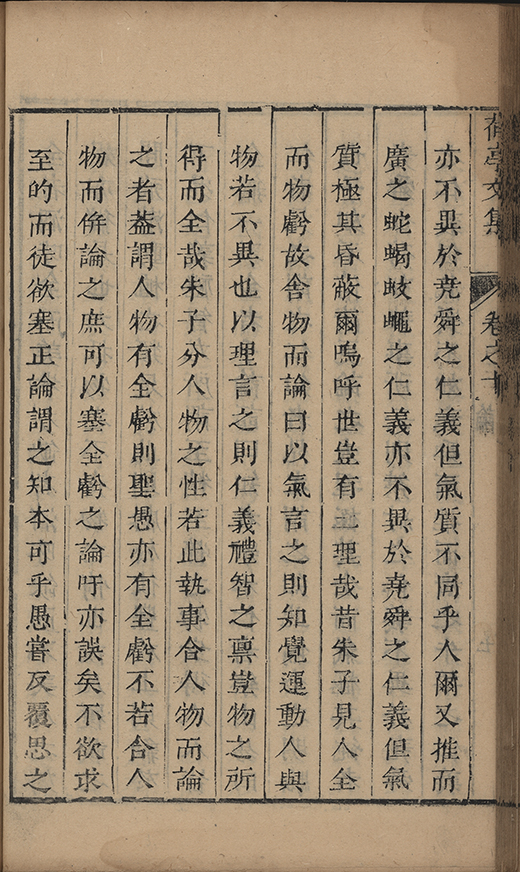 亭文集 卷之十
亦不異於堯舜之仁義但氣質不同乎人爾又推而
廣之蛇蝎蚊蠅之仁義亦不異於堯舜之仁義但氣
質極其昏蔽爾嗚呼世豈有二理哉昔朱子見人全
而物虧故舍物而論曰以氣言之則知覺運動人與
物若不異也以理言之則仁義禮智之禀豈物之所
得而全哉朱子分人物之性若此執事合人物而論
之者葢謂人物有全虧則聖愚亦有全虧不若合人
物而倂論之庶可以塞全虧之論吁亦誤矣不欲求
至的而徒欲塞正論謂之知本可乎愚嘗反覆思之